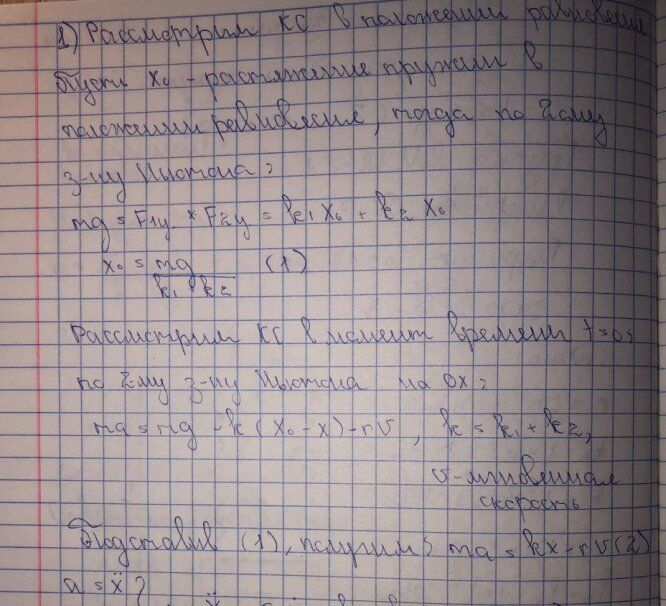 1) Рассмотрим КС в положении равновесия
Пусть x₀ - растяжение пружин в
положении равновесия, тогда по 2ому
з-ну Ньютона:
mg = F1y + F2y = k₁ x₀ + k₂ x₀
x₀ = mg / k₁ + k₂ (1)
Рассмотрим КС в момент времени t=0;
по 2му з-ну Ньютона на OX:
ma = mg - k (x₀ - x) - rv, k = k₁ + k₂,
v - мгновенная
скорость
Подставив (1), получим: ma = kx - rv (2)
a = ẍ;